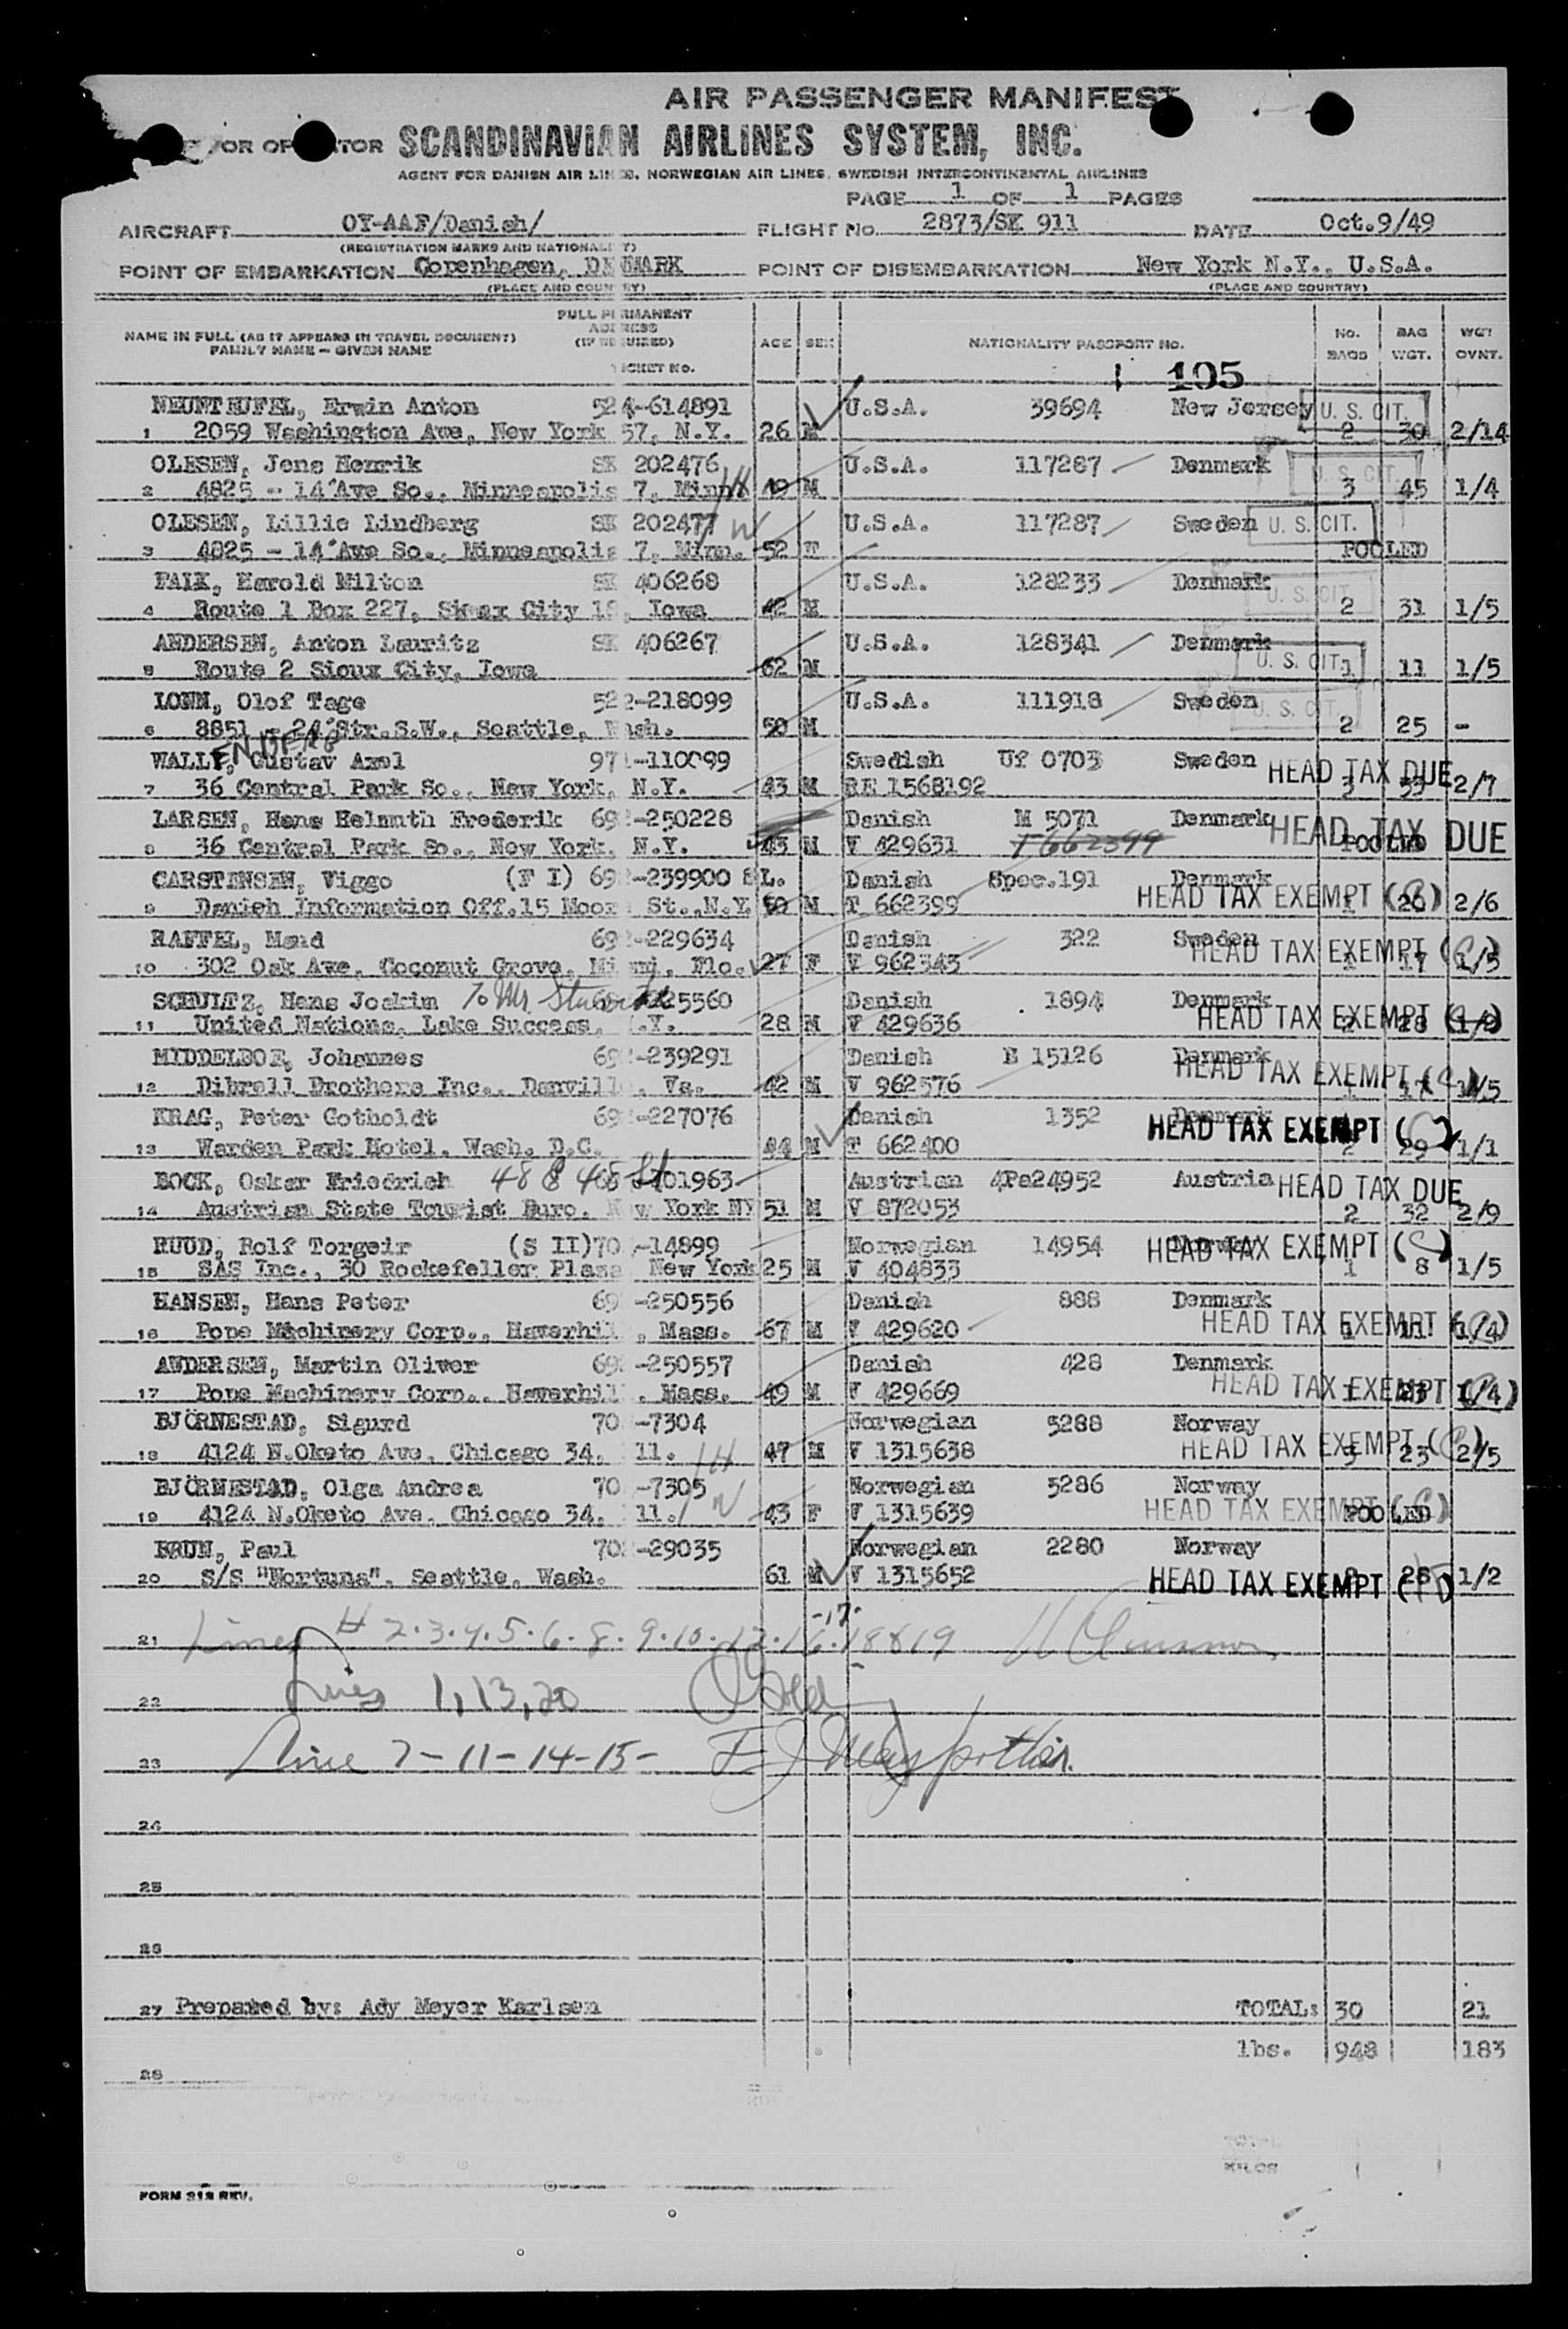 AIR PASSENGER MANIFEST
SCANDINAVIAN AIRLINES SYSTEM, INC.
AGENT FOR DANISH AIR LINES, NORWEGIAN AIR LINES, SWEDISH INTERCONTINENTAL AIRLINES
PAGE 1 OF 1 PAGES
AIRCRAFT OY-AAF/Danish/ FLIGHT No. 2873/SK 911 DATE Oct.9/49
(REGISTRATION MARKS AND NATIONALITY)
POINT OF EMBARKATION Copenhagen, DENMARK POINT OF DISEMBARKATION New York N.Y., U.S.A.
(PLACE AND COUNTRY) (PLACE AND COUNTRY)
NAME IN FULL (AS IT APPEARS IN TRAVEL DOCUMENT) FAMILY NAME - GIVEN NAME
FULL PERMANENT ADDRESS (IF REQUIRED) TICKET No.
AGE SEX NATIONALITY PASSPORT No. No. BAGS BAG WGT. WGT OVNT.
195
NEUNTEUFEL, Erwin Anton 524-614891 U.S.A. 39694 New Jersey U. S. CIT.
1 2059 Washington Ave, New York 57, N.Y. 26 M 2 30 2/14
OLESEN, Jens Henrik SK 202476 U.S.A. 117287 Denmark U. S. CIT.
2 4825 - 14'Ave So., Minneapolis 7, Minn. 49 M 3 45 1/4
OLESEN, Lillie Lindberg SK 202477 U.S.A. 117287 Sweden U. S. CIT.
3 4825 - 14'Ave So., Minneapolis 7, Minn. 52 F POOLED
FALK, Harold Milton SK 406268 U.S.A. 128233 Denmark U. S. CIT.
4 Route 1 Box 227, Sioux City 18, Iowa 42 M 2 31 1/5
ANDERSEN, Anton Lauritz SK 406267 U.S.A. 128341 Denmark U. S. CIT.
5 Route 2 Sioux City, Iowa 62 M 1 11 1/5
LONN, Olof Tage 522-218099 U.S.A. 111918 Sweden U. S. CIT.
6 8851 - 24'Str.S.W., Seattle, Wash. 50 M 2 25 -
ENBERG
WALL, Gustav Axel 971-110099 Swedish Uf 0703 Sweden HEAD TAX DUE
7 36 Central Park So., New York, N.Y. 43 M RE 1568192 3 53 2/7
LARSEN, Hans Helmuth Frederik 692-250228 Danish M 5071 Denmark HEAD TAX DUE
8 36 Central Park So., New York, N.Y. 43 M V 429631 T 662399 POOLED
CARSTENSEN, Viggo (F I) 692-239900 SL. Danish Spec.191 Denmark HEAD TAX EXEMPT
9 Danish Information Off.15 Moore St.,N.Y. 50 M T 662399 1 26 2/6
RAFFEL, Mand 692-229634 Danish 322 Sweden HEAD TAX EXEMPT
10 302 Oak Ave, Coconut Grove, Miami, Flo. 27 F V 962343 1 17 1/5
SCHULTZ, Hans Joakim 225560 Danish 1894 Denmark HEAD TAX EXEMPT
11 United Nations, Lake Success, N.Y. 28 M V 429636 2 28 1/9
MIDDELBOE, Johannes 692-239291 Danish E 15126 Denmark HEAD TAX EXEMPT
12 Dibrell Brothers Inc., Danville, Va. 42 M V 962576 1 17 1/5
KRAG, Peter Gotholdt 692-227076 Danish 1352 Denmark HEAD TAX EXEMPT
13 Warden Park Hotel, Wash. D.C. 44 M T 662400 2 29 1/1
BOCK, Oskar Friedrich 48 E 48 St 701963 Austrian 4Pa24952 Austria HEAD TAX DUE
14 Austrian State Tourist Buro, New York NY 51 M V 872053 2 32 2/9
RUUD, Rolf Torgeir (S II) 70 -14899 Norwegian 14954 Norway HEAD TAX EXEMPT
15 SAS Inc., 30 Rockefeller Plaza New York 25 M V 404833 1 8 1/5
HANSEN, Hans Peter 69 -250556 Danish 888 Denmark HEAD TAX EXEMPT
16 Pope Machinery Corp., Haverhill, Mass. 67 M V 429620 1 11 1/4
ANDERSEN, Martin Oliver 692-250557 Danish 428 Denmark HEAD TAX EXEMPT
17 Pope Machinery Corp., Haverhill, Mass. 49 M V 429669 1 23 1/4
BJÖRNESTAD, Sigurd 70 -7304 Norwegian 5288 Norway HEAD TAX EXEMPT
18 4124 N.Oketo Ave, Chicago 34, Ill. 47 M V 1315638 3 23 2/5
BJÖRNESTAD, Olga Andrea 70 -7305 Norwegian 5286 Norway HEAD TAX EXEMPT
19 4124 N.Oketo Ave, Chicago 34, Ill. 43 F V 1315639 POOLED
BRUN, Paul 702-29035 Norwegian 2280 Norway
20 S/S "Nortuna", Seattle, Wash. 61 M V 1315652 HEAD TAX EXEMPT 2 28 1/2
21 Lines # 2.3.4.5.6.8.9.10.12.16.17.18 & 19
22 Lines 1, 13, 20
23 Line 7-11-14-15-
24
25
26
27 Prepared by: Ady Meyer Karlsen TOTAL: 30 21
lbs. 948 183
28
KILOS
FORM 218 REV.